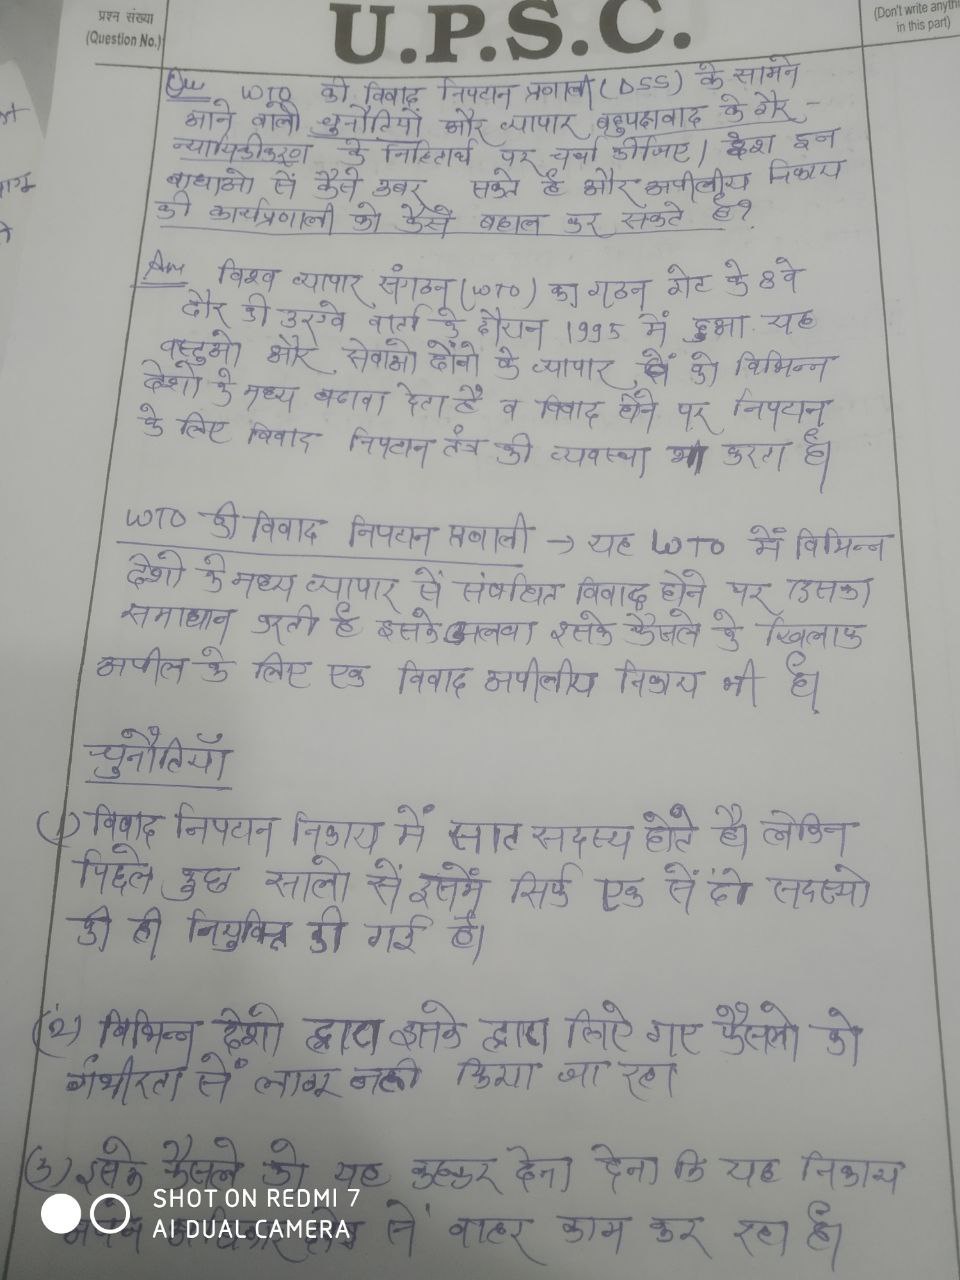 प्रश्न संख्या
(Question No.)
U.P.S.C.
(Don't write anyth
in this part)
Qu WTO की विवाद निपटान प्रणाली (DSS) के सामने
आने वाली चुनौतियों और व्यापार बहुपक्षवाद के गैर-
न्यायिकीकरण के निहितार्थ पर चर्चा कीजिए। देश इन
बाधाओ से कैसे उबर सकते है और अपीलीय निकाय
की कार्यप्रणाली को कैसे बहाल कर सकते है?
Ans विश्व व्यापार संगठन (WTO) का गठन गेट के 8वे
दौर की उरुग्वे वार्ता के दौरान 1995 में हुआ यह
वस्तुओ और सेवाओ दोनो के व्यापार को विभिन्न
देशो के मध्य बढावा देता है व विवाद होने पर निपटान
के लिए विवाद निपटान तंत्र की व्यवस्था भी करता है।
WTO की विवाद निपटान प्रणाली → यह WTO में विभिन्न
देशो के मध्य व्यापार से संबंधित विवाद होने पर उसका
समाधान करती है इसके अलवा इसके फैसले के खिलाफ
अपील के लिए एक विवाद अपीलीय निकाय भी है।
चुनौतियाँ
(1) विवाद निपटान निकाय में सात सदस्य होते है। लेकिन
पिछले कुछ सालो से इसमें सिर्फ एक से दो सदस्यो
की ही नियुक्ति की गई है।
(2) विभिन्न देशो द्वारा इसके द्वारा लिऐ गए फैसलो को
गंभीरता से लागू नही किया जा रहा
(3) इसके फैसले को यह कहकर देना देना कि यह निकाय
से बाहर काम कर रहा है।
SHOT ON REDMI 7
AI DUAL CAMERA